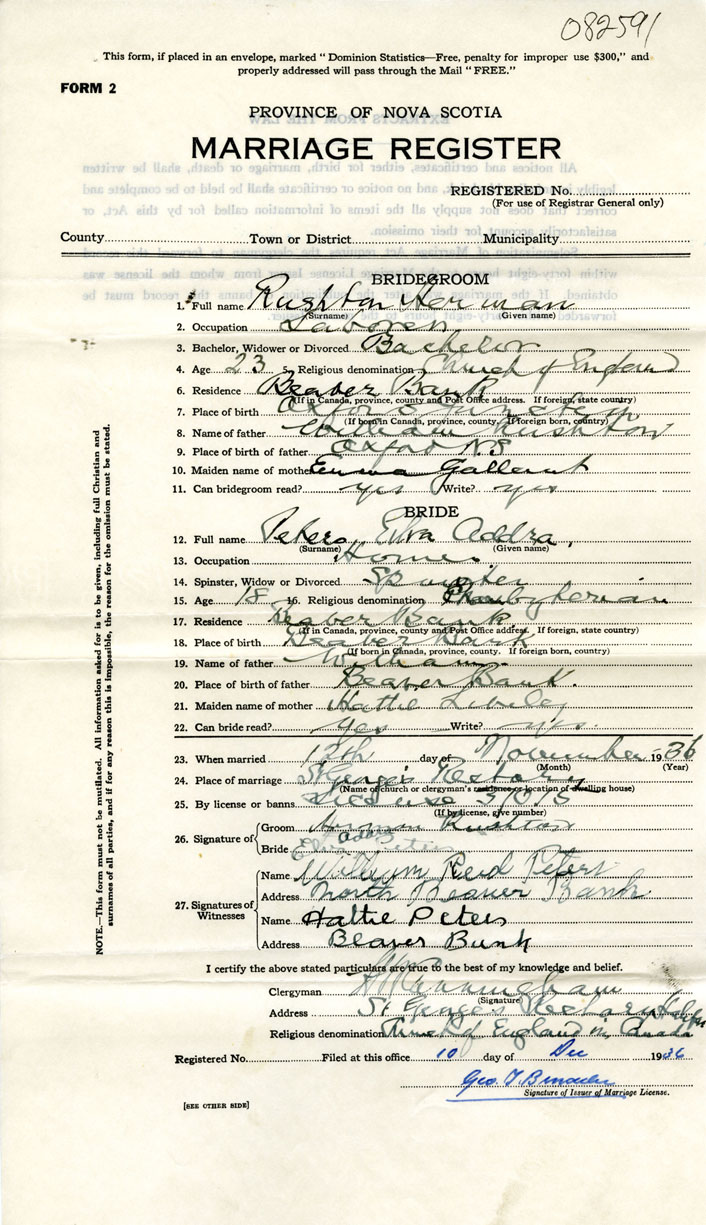 082591
This form, if placed in an envelope, marked "Dominion Statistics—Free, penalty for improper use $300," and
properly addressed will pass through the Mail "FREE."
FORM 2
PROVINCE OF NOVA SCOTIA
MARRIAGE REGISTER
REGISTERED No.
(For use of Registrar General only)
County Town or District Municipality
BRIDEGROOM
1. Full name Rushton Herman
(Surname) (Given name)
2. Occupation Laborer
3. Bachelor, Widower or Divorced Bachelor
4. Age 23 5. Religious denomination Church of England
6. Residence Beaver Bank
(If in Canada, province, county and Post Office address. If foreign, state country)
7. Place of birth Oxford
(If born in Canada, province, county. If foreign born, country)
8. Name of father William Rushton
9. Place of birth of father Oxford N.S
10. Maiden name of mother Emma Gallant
11. Can bridegroom read? yes Write? yes
BRIDE
12. Full name Peters Elva Addra
(Surname) (Given name)
13. Occupation Home
14. Spinster, Widow or Divorced Spinster
15. Age 18 16. Religious denomination Presbyterian
17. Residence Beaver Bank
(If in Canada, province, county and Post Office address. If foreign, state country)
18. Place of birth Beaver Bank
(If born in Canada, province, county. If foreign born, country)
19. Name of father William
20. Place of birth of father Beaver Bank.
21. Maiden name of mother Hattie
22. Can bride read? yes Write? yes.
23. When married 12th day of November 1936
(Month) (Year)
24. Place of marriage St George's Rectory
(Name of church or clergyman's residence or location of dwelling house)
25. By license or banns License 37015
(If by license, give number)
26. Signature of
Groom Herman Rushton
Bride Elva Addra Peters
27. Signatures of Witnesses
Name William Reid Peters
Address North Beaver Bank
Name Hattie Peters
Address Beaver Bank
I certify the above stated particulars are true to the best of my knowledge and belief.
Clergyman Cunningham
(Signature)
Address St George's Rectory
Religious denomination Church of England in Canada
Registered No. Filed at this office 10 day of Dec 1936
Geo. T
Signature of Issuer of Marriage License.
[SEE OTHER SIDE]
NOTE.—This form must not be mutilated. All information asked for is to be given, including full Christian and
surnames of all parties, and if for any reason this is impossible, the reason for the omission must be stated.